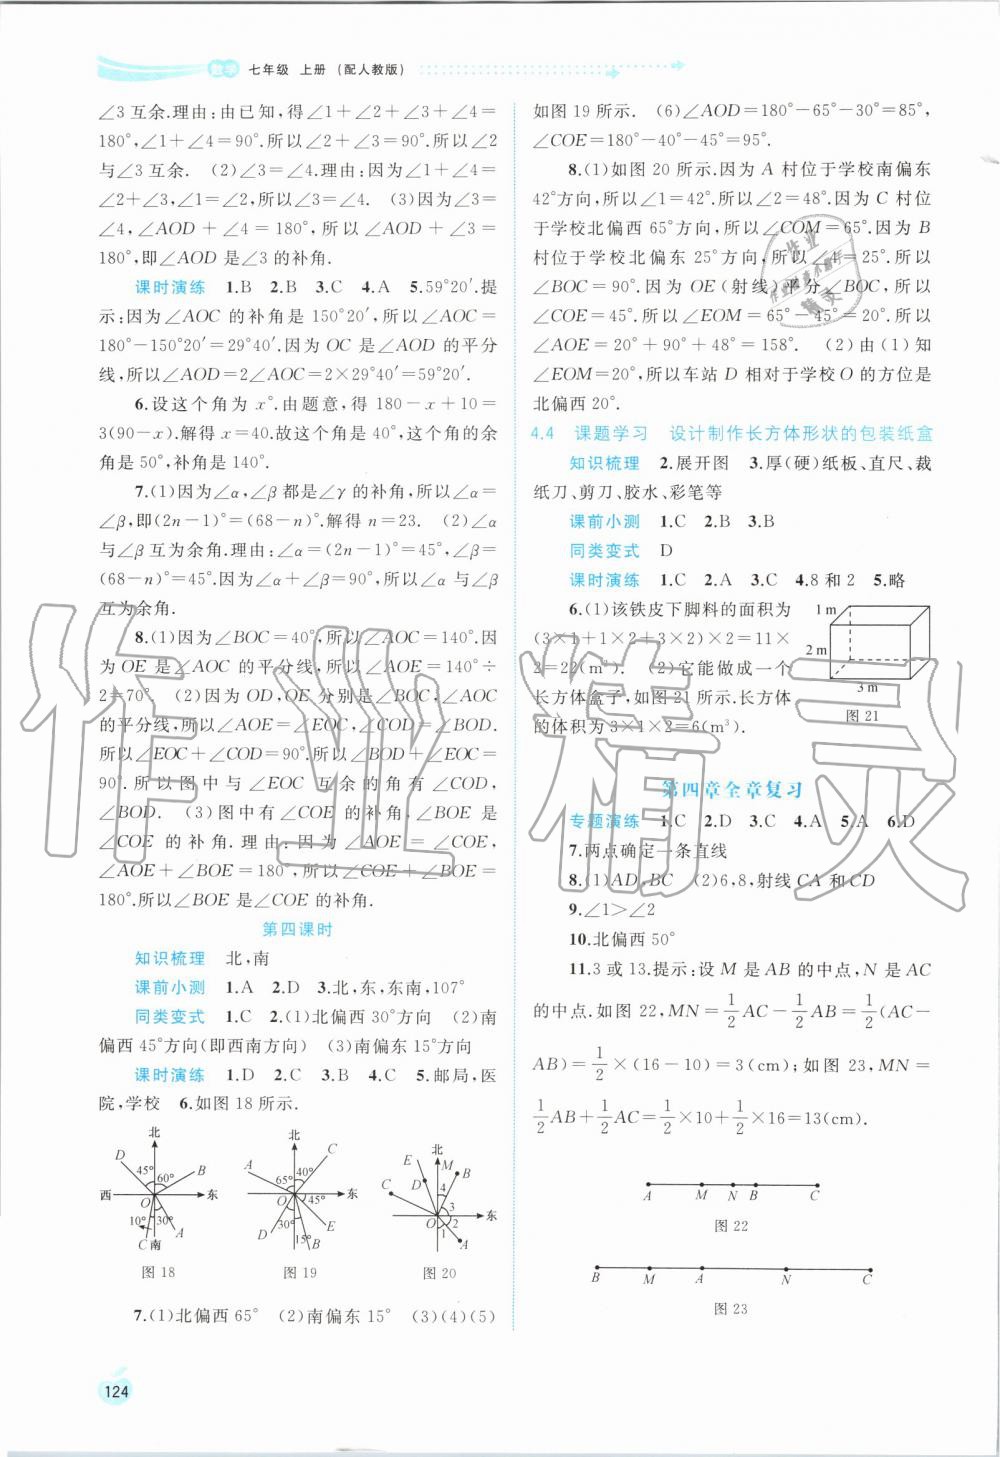 数学 七年级 上册 (配人教版)
∠3互余.理由:由已知,得∠1+∠2+∠3+∠4=
180°,∠1+∠4=90°.所以∠2+∠3=90°.所以∠2
与∠3互余. (2)∠3=∠4.理由:因为∠1+∠4=
∠2+∠3,∠1=∠2,所以∠3=∠4. (3)因为∠3=
∠4,∠AOD+∠4=180°,所以∠AOD+∠3=
180°,即∠AOD是∠3的补角.
课时演练 1.B 2.B 3.C 4.A 5.59°20′.提
示:因为∠AOC的补角是150°20′,所以∠AOC=
180°-150°20′=29°40′.因为OC是∠AOD的平分
线,所以∠AOD=2∠AOC=2×29°40′=59°20′.
6.设这个角为x°.由题意,得180-x+10=
3(90-x).解得x=40.故这个角是40°,这个角的余
角是50°,补角是140°.
7.(1)因为∠α,∠β都是∠γ的补角,所以∠α=
∠β,即(2n-1)°=(68-n)°.解得n=23. (2)∠α
与∠β互为余角.理由:∠α=(2n-1)°=45°,∠β=
(68-n)°=45°.因为∠α+∠β=90°,所以∠α与∠β
互为余角.
8.(1)因为∠BOC=40°,所以∠AOC=140°.因
为OE是∠AOC的平分线,所以∠AOE=140°÷
2=70°. (2)因为OD,OE分别是∠BOC,∠AOC
的平分线,所以∠AOE=∠EOC,∠COD=∠BOD.
所以∠EOC+∠COD=90°.所以∠EOC+∠BOD=
90°.所以图中与∠EOC互余的角有∠COD,
∠BOD. (3)图中有∠COE的补角,∠BOE是
∠COE的补角.理由:因为∠AOE=∠COE,
∠AOE+∠BOE=180°,所以∠COE+∠BOE=
180°.所以∠BOE是∠COE的补角.
第四课时
知识梳理 北,南
课前小测 1.A 2.D 3.北,东,东南,107°
同类变式 1.C 2.(1)北偏西30°方向 (2)南
偏西45°方向(即西南方向) (3)南偏东15°方向
课时演练 1.D 2.C 3.B 4.C 5.邮局,医
院,学校 6.如图18所示.
北 D 45° 60° B 西 O 东 10° 30° A C 南
图18
北 A 65° 40° C O 45° 东 D 30° 15° B E
图19
北 E M B C D 4 3 O 2 1 东 A
图20
7.(1)北偏西65° (2)南偏东15° (3)(4)(5)
如图19所示. (6)∠AOD=180°-65°-30°=85°,
∠COE=180°-40°-45°=95°.
8.(1)如图20所示.因为A村位于学校南偏东
42°方向,所以∠1=42°.所以∠2=48°.因为C村位
于学校北偏西65°方向,所以∠COM=65°.因为B
村位于学校北偏东25°方向,所以∠4=25°.所以
∠BOC=90°.因为OE(射线)平分∠BOC,所以
∠COE=45°.所以∠EOM=65°-45°=20°.所以
∠AOE=20°+90°+48°=158°. (2)由(1)知
∠EOM=20°,所以车站D相对于学校O的方位是
北偏西20°.
4.4 课题学习 设计制作长方体形状的包装纸盒
知识梳理 2.展开图 3.厚(硬)纸板、直尺、裁
纸刀、剪刀、胶水、彩笔等
课前小测 1.C 2.B 3.B
同类变式 D
课时演练 1.C 2.A 3.C 4.8和2 5.略
6.(1)该铁皮下脚料的面积为
(3×1+1×2+3×2)×2=11×
2=22(m²). (2)它能做成一个
长方体盒子,如图21所示.长方体
的体积为3×1×2=6(m³).
1 m
2 m
3 m
图21
第四章全章复习
专题演练 1.C 2.D 3.C 4.A 5.A 6.D
7.两点确定一条直线
8.(1)AD,BC (2)6,8,射线CA和CD
9.∠1>∠2
10.北偏西50°
11.3或13.提示:设M是AB的中点,N是AC
的中点.如图22,MN=1/2AC-1/2AB=1/2(AC-
AB)=1/2×(16-10)=3(cm);如图23,MN=
1/2AB+1/2AC=1/2×10+1/2×16=13(cm).
A M N B C
图22
B M A N C
图23
124
作业精灵